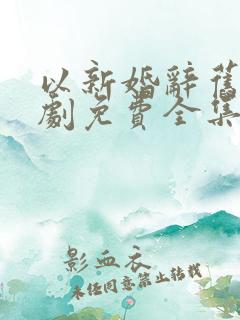 以新婚辭舊
劇免費全集
影血衣
未任同意禁止转载